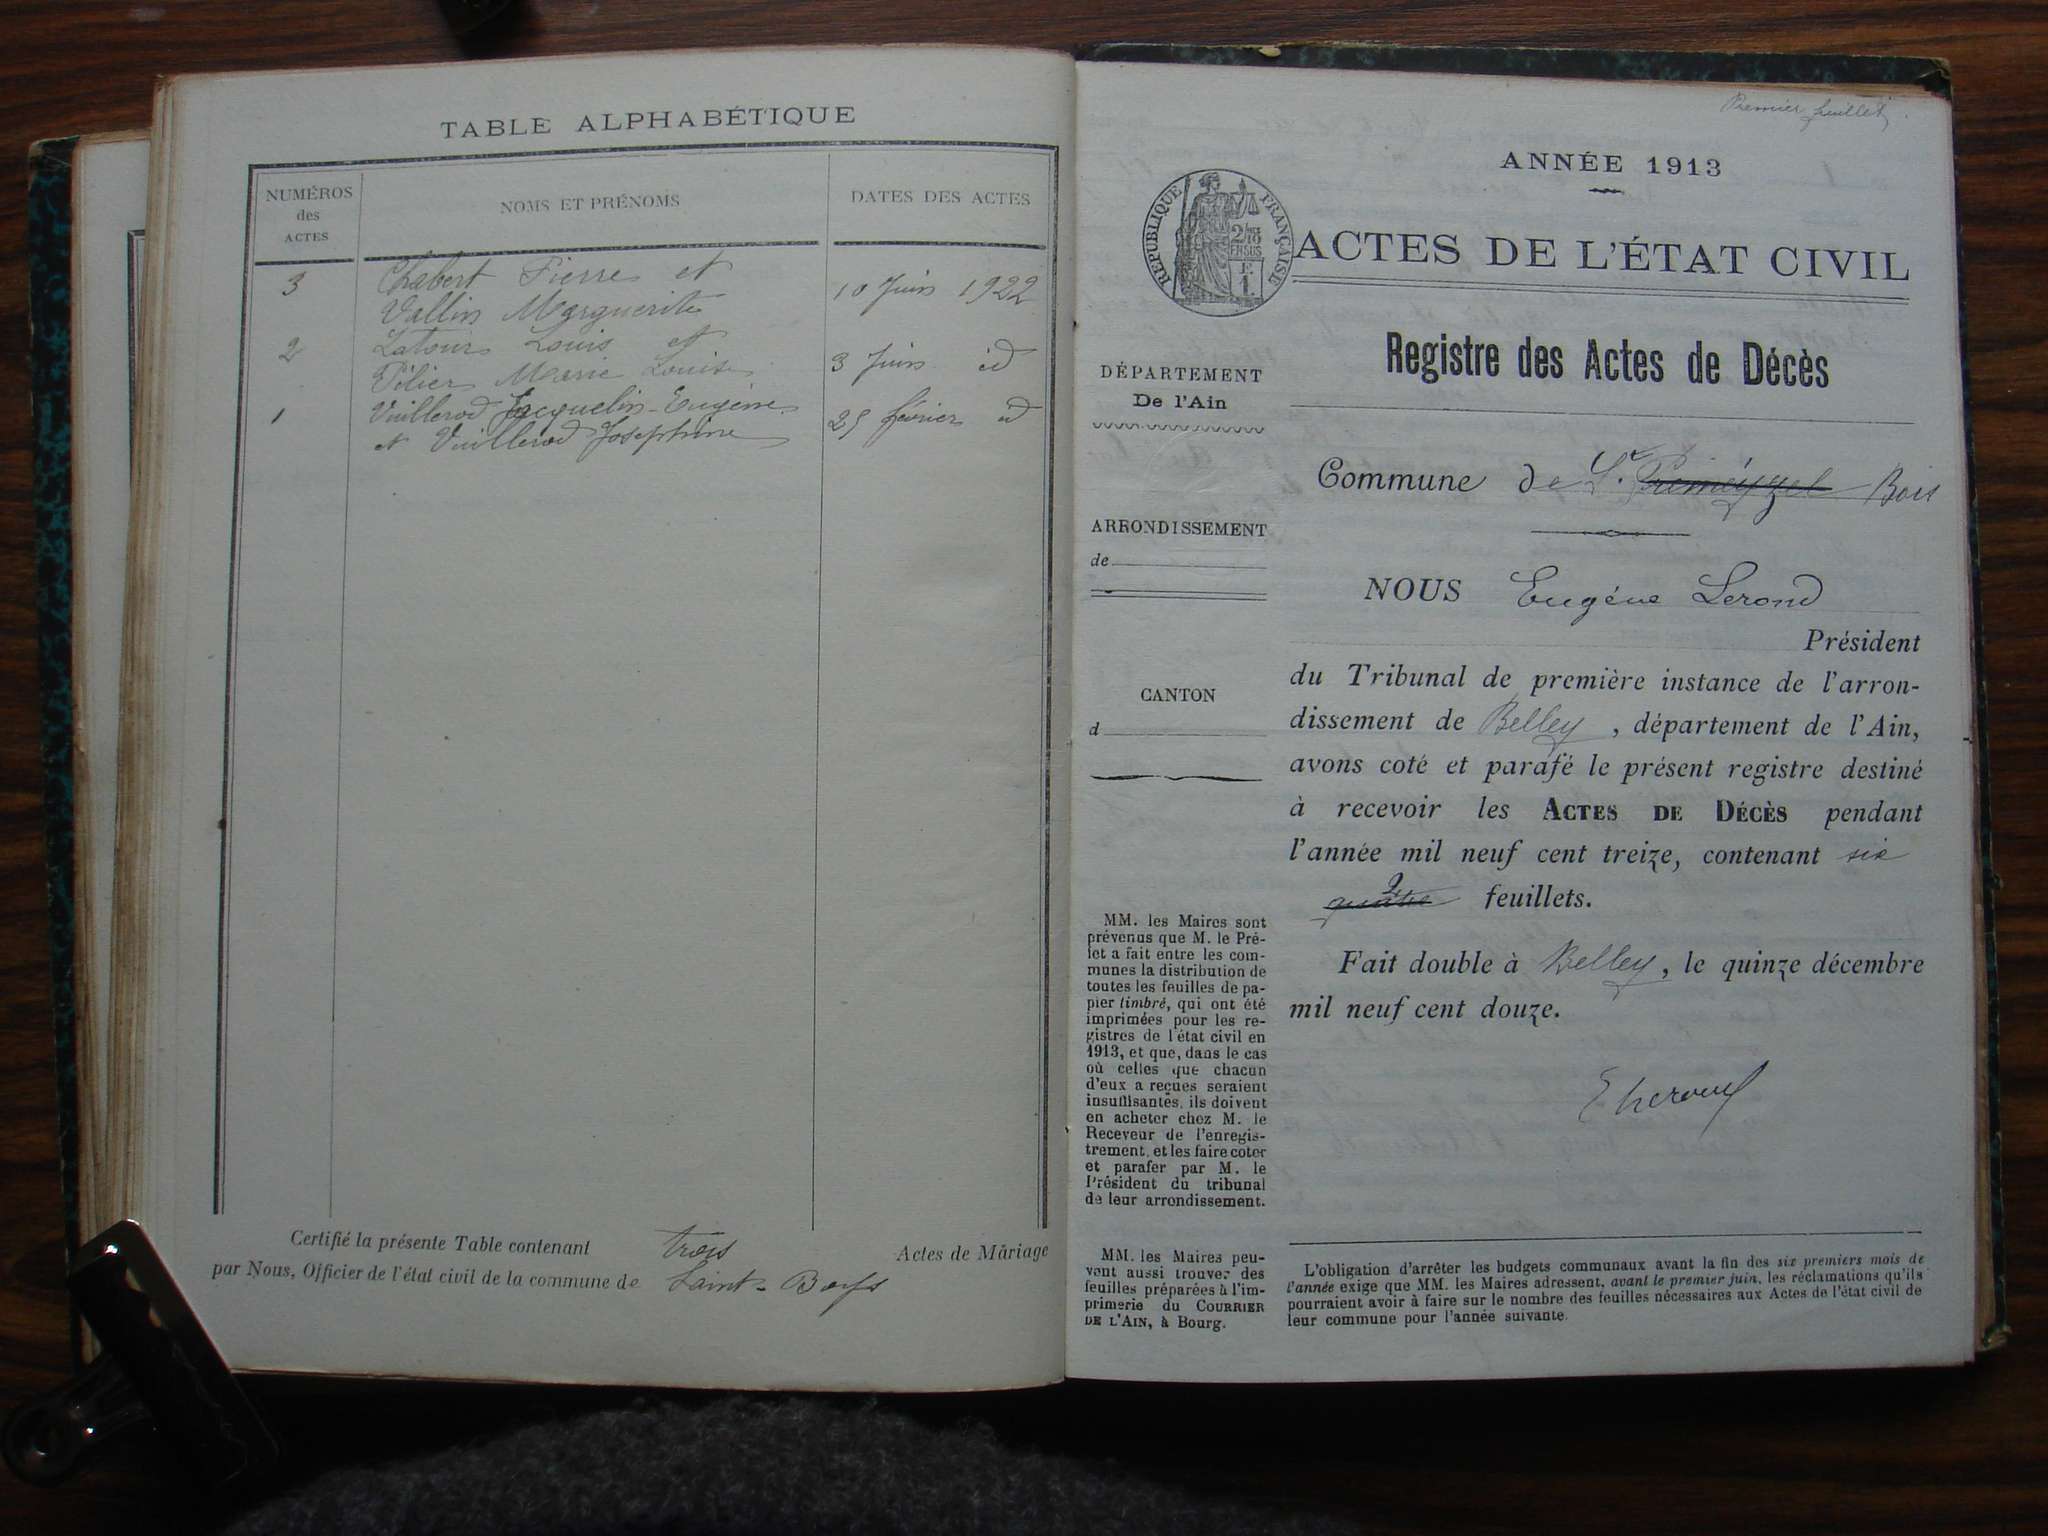 TABLE ALPHABÉTIQUE
NUMÉROS des ACTES
NOMS ET PRÉNOMS
DATES DES ACTES
3 Chabert Pierre et 10 Juin 1922
Vallin Marguerite
2 Latour Louis et 3 Juin id
Marie Louise
1 Vuillerod Jacquelin-Eugène 25 février id
et Vuillerod Josephine
Certifié la présente Table contenant trois Actes de Mariage
par Nous, Officier de l'état civil de la commune de Saint-Boys
Premier feuillet
ANNÉE 1913
RÉPUBLIQUE FRANÇAISE
2/10 EN SUS
F. 1.
ACTES DE L'ÉTAT CIVIL
Registre des Actes de Décès
DÉPARTEMENT
De l'Ain
Commune de St. Prémeyzel Bois
ARRONDISSEMENT
de
NOUS Eugène Lerond
Président
CANTON
d
du Tribunal de première instance de l'arron-
dissement de Belley, département de l'Ain,
avons coté et parafé le présent registre destiné
à recevoir les ACTES DE DÉCÈS pendant
l'année mil neuf cent treize, contenant six
quatre feuillets.
Fait double à Belley, le quinze décembre
mil neuf cent douze.
MM. les Maires sont
prévenus que M. le Pré-
fet a fait entre les com-
munes la distribution de
toutes les feuilles de pa-
pier timbré, qui ont été
imprimées pour les re-
gistres de l'état civil en
1913, et que, dans le cas
où celles que chacun
d'eux a reçues seraient
insuffisantes, ils doivent
en acheter chez M. le
Receveur de l'enregis-
trement, et les faire coter
et parafer par M. le
Président du tribunal
de leur arrondissement.
MM. les Maires peu-
vent aussi trouver des
feuilles préparées à l'im-
primerie du COURRIER
DE L'AIN, à Bourg.
L'obligation d'arrêter les budgets communaux avant la fin des six premiers mois de
l'année exige que MM. les Maires adressent, avant le premier juin, les réclamations qu'ils
pourraient avoir à faire sur le nombre des feuilles nécessaires aux Actes de l'état civil de
leur commune pour l'année suivante.